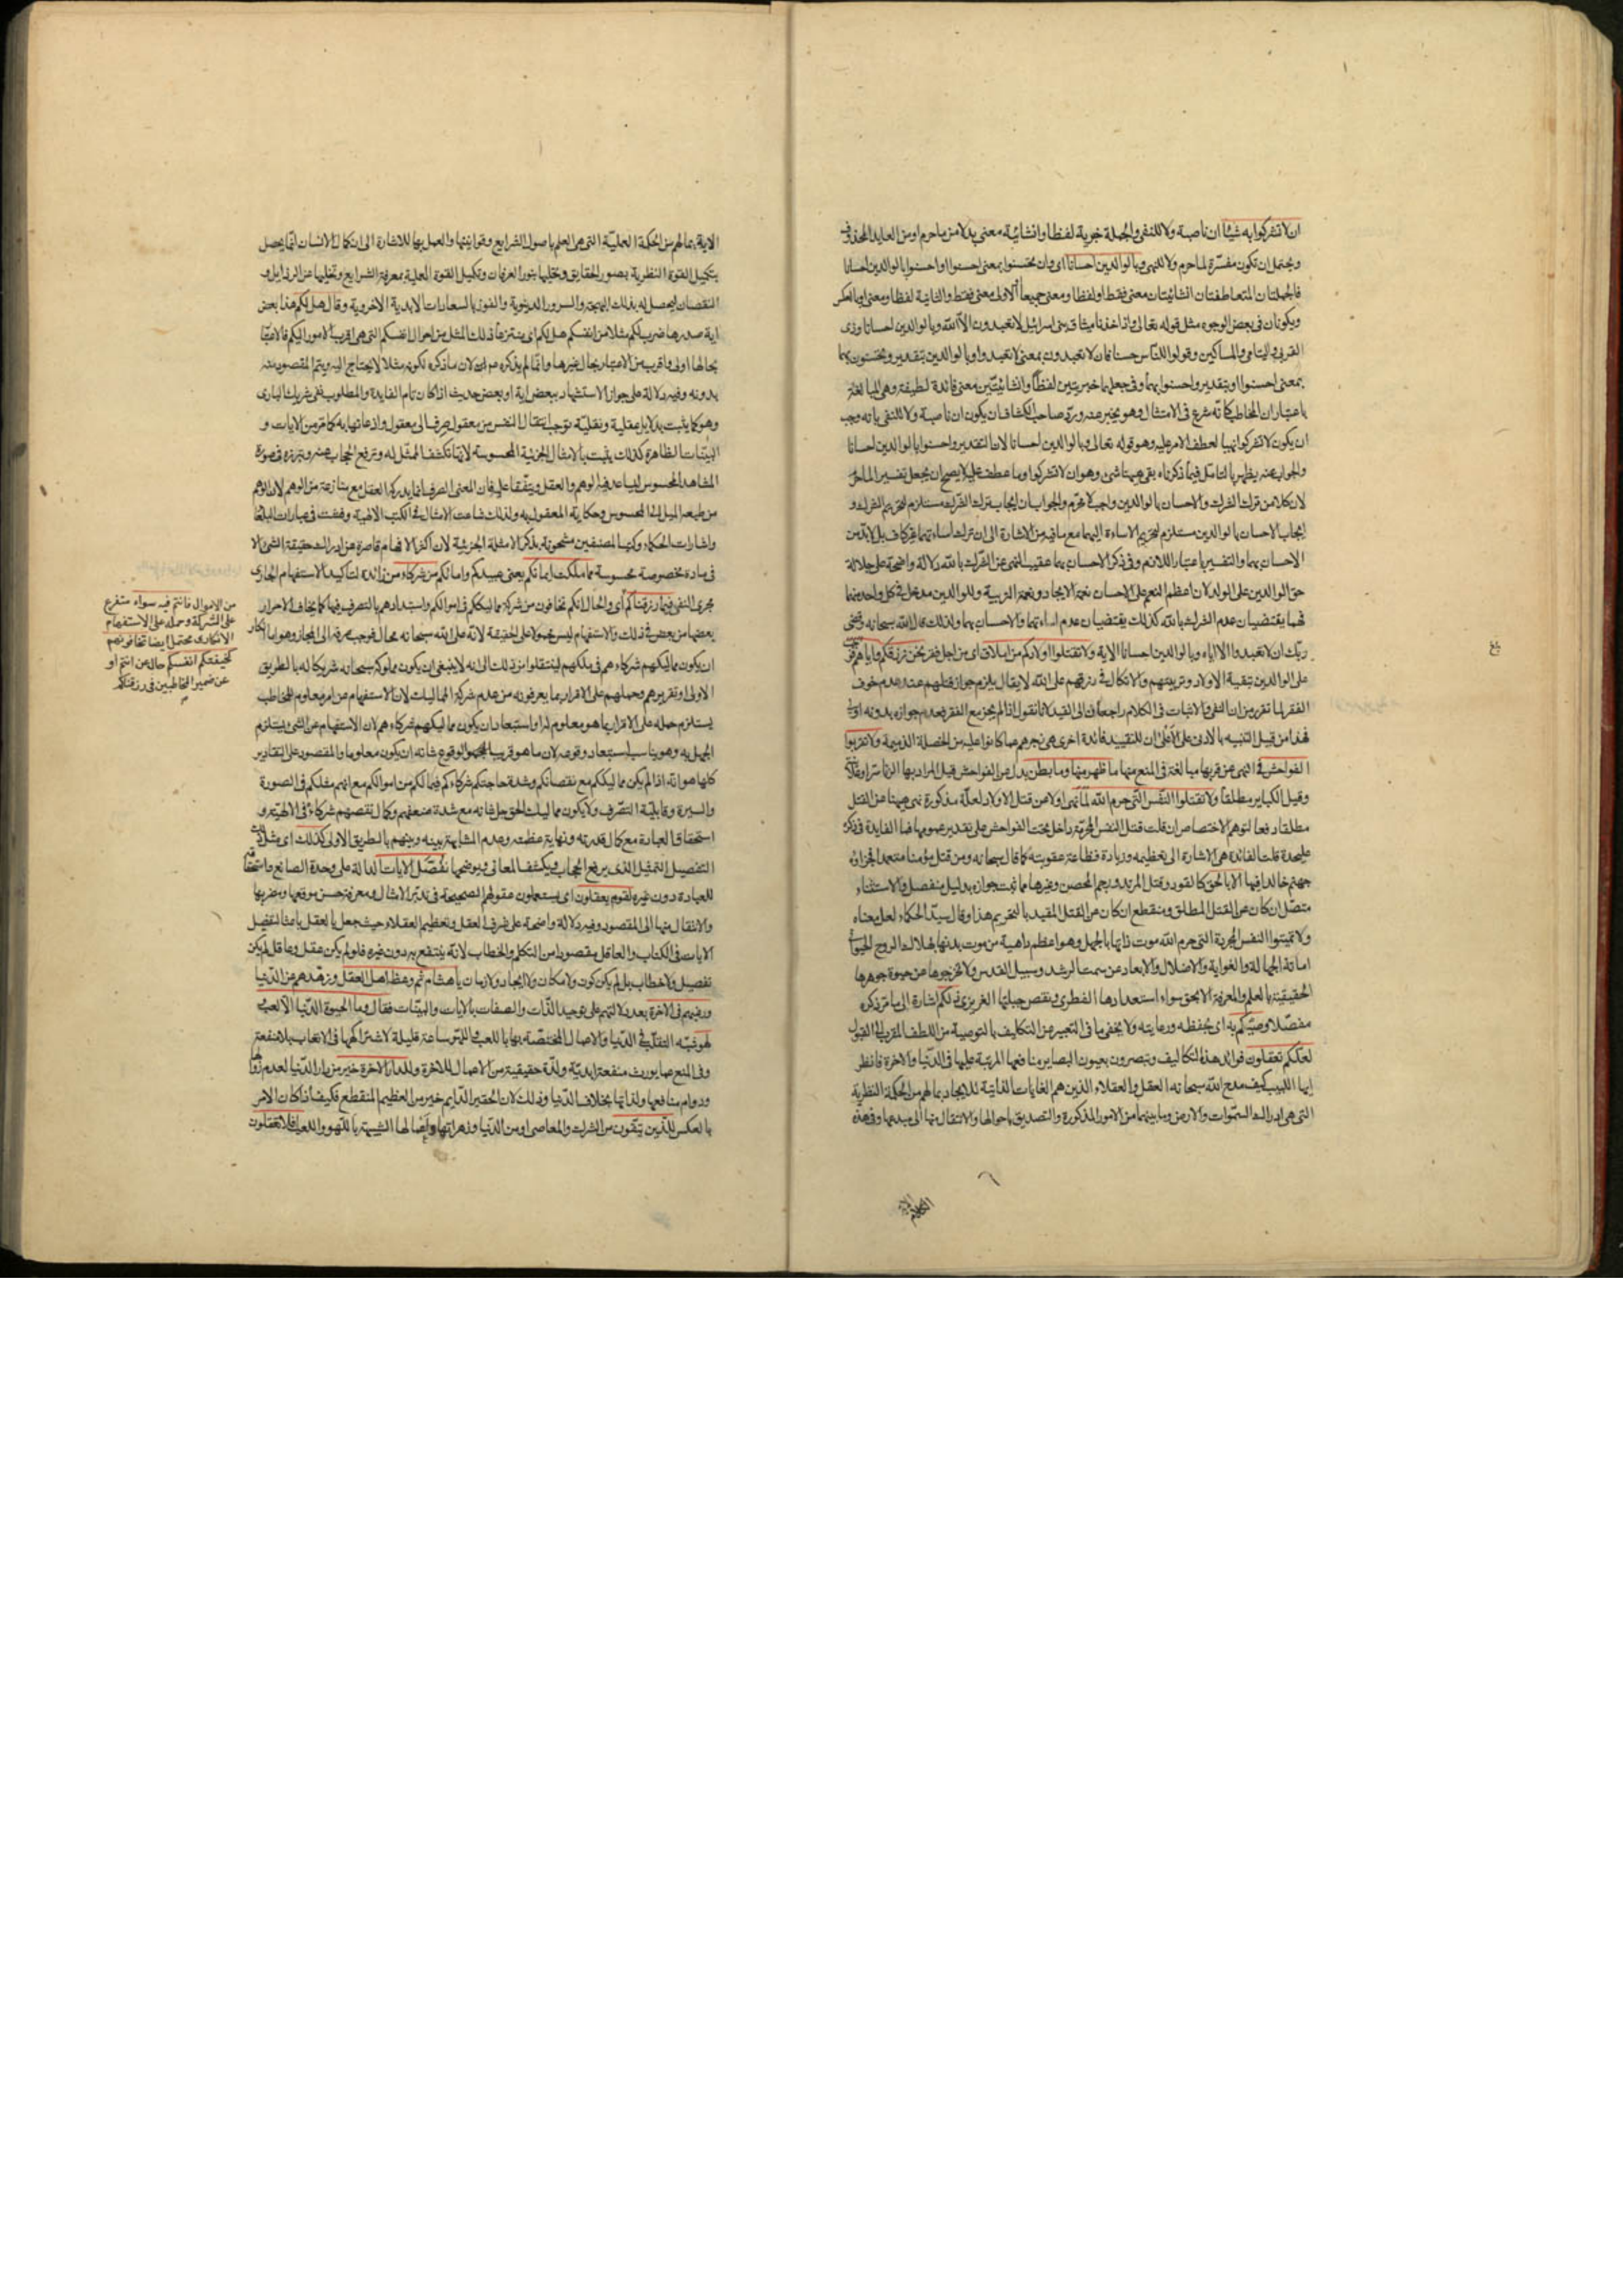 ان لا تشركوا به شيئا ان ناصبة ولا للنفي والجملة خبرية لفظا وانشائية معنى بدلا من ما حرم او من العايد المحذوف
ويحتمل ان تكون مفسرة لما حرم ولا للنهي وبالوالدين احسانا اى وان تحسنوا بمعنى احسنوا او احسنوا بالوالدين احسانا
فالجملتان المتعاطفتان انشائيتان معنى فقط او لفظا ومعنى جميعا او الاولى معنى فقط والثانية لفظا ومعنى او بالعكس
ويكونان في بعض الوجوه مثل قوله تعالى واذ اخذنا ميثاق بنى اسرائيل لا تعبدون الا الله وبالوالدين احسانا وذى
القربى واليتامى والمساكين وقولوا للناس حسنا فان لا تعبدون بمعنى لا تعبدوا وبالوالدين بتقدير وتحسنون بهما
بمعنى احسنوا او بتقدير واحسنوا بهما وفي جعلهما خبريتين لفظا وانشائيتين معنى فائدة لطيفة وهى المبالغة
باعتبار ان المخاطب كانه شرع في الامتثال وهو يخبر عنه ورد صاحب الكشاف ان يكون ان ناصبة ولا للنفي بانه وجب
ان يكون لا تشركوا نهيا لعطف الامر عليه وهو قوله تعالى وبالوالدين احسانا لان التقدير واحسنوا بالوالدين احسانا
والجواب عنه يظهر بالتامل فيما ذكرناه بقى هيهنا شئ وهو ان لا تشركوا وما عطف عليه لا يصح ان يجعل تفسيرا لما حرم
لان كلا من ترك الشرك والاحسان بالوالدين واجب لا محرم والجواب ان ايجاب ترك الشرك مستلزم لتحريم الشرك و
ايجاب الاحسان بالوالدين مستلزم لتحريم الاساءة اليهما مع ما فيه من الاشارة الى ان ترك اساءتهما غير كاف بل لا بد من
الاحسان بهما والتفسير باعتبار اللازم وفي ذكر الاحسان بهما عقيب النهى عن الشرك بالله دلالة واضحة على جلالة
حق الوالدين على الولد لان اعظم النعم على الانسان نعمة الايجاد ونعمة التربية وللوالدين مدخل في كل واحد منهما
فهما يقتضيان عدم الشرك بالله كذلك يقتضيان عدم اساءتهما والاحسان بهما ولذلك قال الله سبحانه وقضى
ربك ان لا تعبدوا الا اياه وبالوالدين احسانا الاية ولا تقتلوا اولادكم من املاق اى من اجل فقر نحن نرزقكم واياهم
على الوالدين تبقية الاولاد وتربيتهم والاتكال في رزقهم على الله لا يقال يلزم جواز قتلهم عند عدم خوف
الفقر لما تقرر من ان النفي والاثبات في الكلام راجعان الى القيد لانا نقول اذا لم يجز مع الفقر فعدم جوازه بدونه اولى
فهذا من قبيل التنبيه بالادنى على الاعلى او ان للتقييد فائدة اخرى هى زجرهم عما كانوا عليه من الخصلة الذميمة ولا تقربوا
الفواحش في النهى عن قربها مبالغة في المنع منها ما ظهر منها وما بطن بدل من الفواحش قيل المراد بها الزنا سرا وعلانية
وقيل الكباير مطلقا ولا تقتلوا النفس التى حرم الله لما نهى اولا عن قتل الاولاد لعلة مذكورة نهى هيهنا عن القتل
مطلقا دفعا لتوهم الاختصاص ان قلت قتل النفس المحرمة داخل تحت الفواحش على تقدير عمومها فما الفايدة في ذكره
عليحدة قلت الفائدة هى الاشارة الى تعظيمه وزيادة فظاعة عقوبته كما قال سبحانه ومن قتل مؤمنا متعمدا فجزاؤه
جهنم خالدا فيها الا بالحق كالقود وقتل المرتد ورجم المحصن وغيرها مما ثبت جوازه بدليل منفصل والاستثناء
متصل ان كان عن القتل المطلق ومنقطع ان كان عن القتل المقيد بالتحريم هذا وقال سيد الحكماء لعل معناه
ولا تميتوا النفس المحرمة التى حرم الله موت ذاتها بالجهل وهو اعظم داهية من موت بدنها بهلاك الروح الحيوانى
اماتة الجهالة والغواية والاضلال والابعاد عن سمت الرشد وسبيل القدس ولا تخرجوها عن حيوة جوهرها
الحقيقية بالعلم والمعرفة الا بحق سواء استعدادها الفطرى ونقص جبلتها الغريزى ذلكم اشارة الى ما مر ذكره
مفصلا وصيكم به اى بحفظه ورعايته ولا يخفى ما في التعبير عن التكاليف بالتوصية من اللطف المقرب الى القبول
لعلكم تعقلون فوائد هذه التكاليف وتبصرون بعيون البصاير منافعها المرتبة عليها في الدنيا والاخرة فانظر
ايها اللبيب كيف مدح الله سبحانه العقل والعقلاء الذين هم الغايات الذاتية للايجاد بما لهم من الحكمة النظرية
التى هى ادراك السموات والارض وما بينهما من الامور المذكورة والتصديق باحوالها والانتقال منها الى مبدعها وفي هذه
الاية بما لهم من الحكمة العملية التى هى العلم باصول الشرايع وقوانينها والعمل بها للاشارة الى ان كمال الانسان انما يحصل
بتكميل القوة النظرية بصور الحقايق وتحليها بنور العرفان وتكميل القوة العملية بمعرفة الشرايع وتخليها عن الرذايل و
النقصان ليحصل له بذلك البهجة والسرور الدنيوية والفوز بالسعادات الابدية الاخروية وقال هل لكم هذا بعض
اية صدرها ضرب لكم مثلا من انفسكم هل لكم اى منتزعا ذلك المثل من احوال انفسكم التى هى اقرب الامور اليكم فالاعتبار
بحالها اولى واقرب من الاعتبار بحال غيرها وانما لم يذكره لان ما ذكره لكونه مثلا لا يحتاج اليه ويتم المقصود منه
بدونه وفيه دلالة على جواز الاستشهاد ببعض اية او بعض حديث اذا كان تام الفايدة والمطلوب نفى شريك البارى
وهو كما يثبت بدلايل عقلية ونقلية توجب انتقال النفس من معقول صرف الى معقول واذعانها به كما مر من الايات و
البينات الظاهرة كذلك يثبت بالامثال الجزئية المحسوسة لانها تكشف الممثل له وترفع الحجاب عنه وتبرزه في صورة
المشاهد المحسوس ليساعد فيه الوهم والعقل ويتفقا عليه فان المعنى الصرف انما يدركه العقل مع منازعة من الوهم لان الوهم
من طبعه الميل الى المحسوس وحكاية المعقول به ولذلك شاعت الامثال في الكتب الالهية وفشت في عبارات البلغاء
واشارات الحكماء وكتب المصنفين مشحونة بذكر الامثلة الجزئية لان اكثر الافهام قاصرة عن ادراك حقيقة الشئ الا
في مادة مخصوصة محسوسة مما ملكت ايمانكم يعنى عبيدكم وامائكم من شركاء من زائدة لتاكيد الاستفهام الجارى
مجرى النفى فيما رزقناكم اى والحال انكم تخافون من شركة مماليككم في اموالكم واستبدادهم بالتصرف فيها كما يخاف الاحرار
بعضها من بعض في ذلك والاستفهام ليس محمولا على الحقيقة لانه على الله سبحانه محال فوجب صرفه الى المجاز وهو اما انكار
ان يكون مماليكهم شركاء هم في ملكهم لينتقلوا من ذلك الى انه لا ينبغى ان يكون مملوكه سبحانه شريكا له بالطريق
الاولى او تقريرهم وحملهم على الاقرار بما يعرفونه من عدم شركة المماليك لان الاستفهام عن امر معلوم للمخاطب
يستلزم حمله على الاقرار بما هو معلوم له او استبعاد ان يكون مماليكهم شركاء هم لان الاستفهام عن الشئ يستلزم
الجهل به وهو يناسب استبعاد وقوعه لان ما هو قريب الوقوع شانه ان يكون معلوما والمقصود على التقادير
كلها هو انه اذا لم يكن مماليككم مع نقصانكم وشدة حاجتكم شركاءكم فيما لكم من اموالكم مع انهم مثلكم في الصورة
والسيرة وقابلية التصرف ولا يكون مماليك الحق جل شانه مع شدة ضعفهم وكمال نقصهم شركاء في الالهية و
استحقاق العبادة مع كمال قدرته ونهاية عظمته وعدم المشابهة بينه وبينهم بالطريق الاولى كذلك اى مثل ذلك
التفصيل التمثيل الذى يرفع الحجاب ويكشف المعانى ويوضحها نفصل الايات الدالة على وحدة الصانع واستحقاقه
للعبادة دون غيره لقوم يعقلون اى يستعملون عقولهم الصحيحة في تدبر الامثال ومعرفة حسن موقعها ومضربها
والانتقال منها الى المقصود وفيه دلالة واضحة على شرف العقل وتعظيم العقلاء حيث جعل العقل باعثا لتفصيل
الايات في الكتاب والعاقل مقصودا من التكلم والخطاب لانه ينتفع به دون غيره فلو لم يكن عقل وعاقل لم يكن
تفصيل ولا خطاب بل لم يكن كون ولا مكان ولا ايجاد ولا زمان يا هشام ثم وعظ اهل العقل وزهدهم عن الدنيا
ورغبهم في الاخرة بعد دلالتهم على توحيد الذات والصفات بالايات والبينات فقال وما الحيوة الدنيا الا لعب
ولهو شبه التقلب في الدنيا والاعمال المختصة بها باللعب واللهو ساعة قليلة لاشتراكهما في الاتعاب بلا منفعة
وفي المنع عما يورث منفعة ابدية ولذة حقيقية من الاعمال للاخرة وللدار الاخرة خير من دار الدنيا لعدم
ودوام منافعها ولذاتها بخلاف الدنيا وذلك لان الحقير الدايم خير من العظيم المنقطع فكيف اذا كان الامر
بالعكس للذين يتقون من الشرك والمعاصى او من الدنيا وزهراتها واعمالها الشبيهة باللهو واللعب افلا تعقلون
من الاموال فانتم فيه سواء متفرع
على الشركة وحمله على الاستفهام
الانكارى محتمل ايضا تخافونهم
كخيفتكم انفسكم حال من انتم او
عن ضمير المخاطبين في رزقناكم